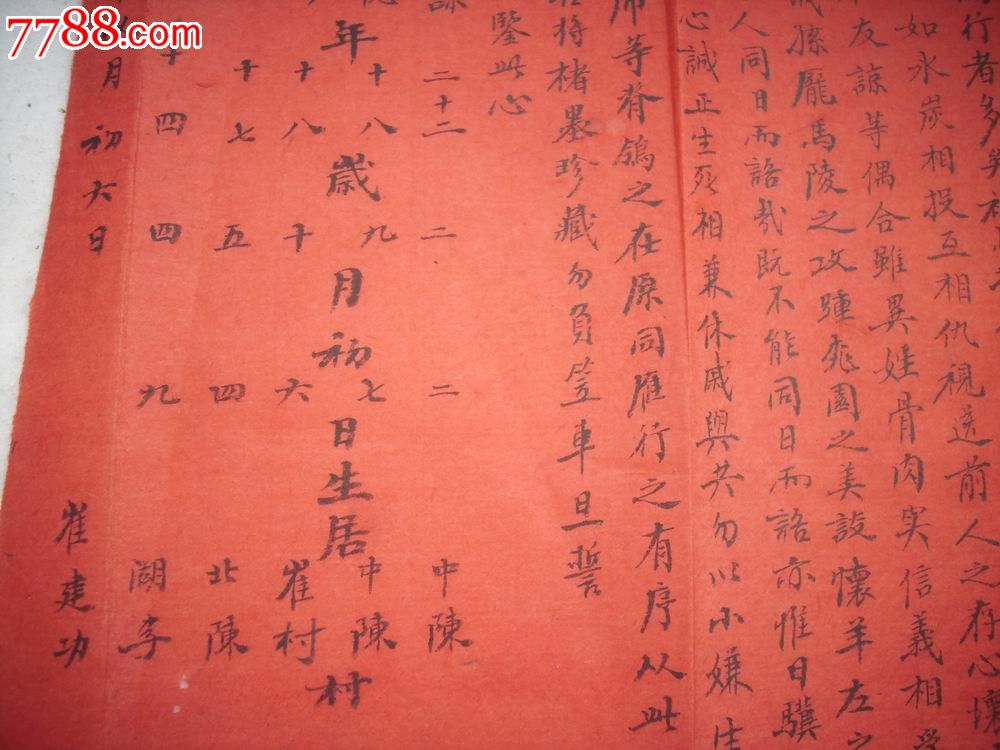 7788.com
中国收藏热线
行者多矣
如水炭相投互相仇視送前人之存心壞
友諒等偶合雖異姓骨肉突信義相
孫龐馬陵之攻踵桃園之美設懷羊左之
人同日而語哉既不能同日而語亦惟日驥
心誠正生死相兼休戚與共勿以小嫌生
等脊鴒之在原同雁行之有序从此
將楮墨珍藏勿負笠車旦誓
鑒此心
諒 二十二 二 二 中陳
十八 九 七 中陳
年 歲 月初 日生居 村
十八 十 六 崔村
十七 五 四 北陳
十四 四 九 湖李
月初六日 崔建功